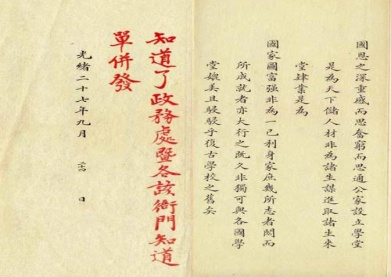 國恩之深重感而思奮窮而思通公家設立學堂
是為天下儲人材非為諸生謀進取諸生來
堂肄業是為
國家圖富强非為一己利身家庶幾所志者闊而
所成就者亦大行之既久非獨可與各國學
堂媲美且駸駸乎復古學校之舊矣
知道了政務處暨各該衙門知道
單併發
光緒二十七年九月 日